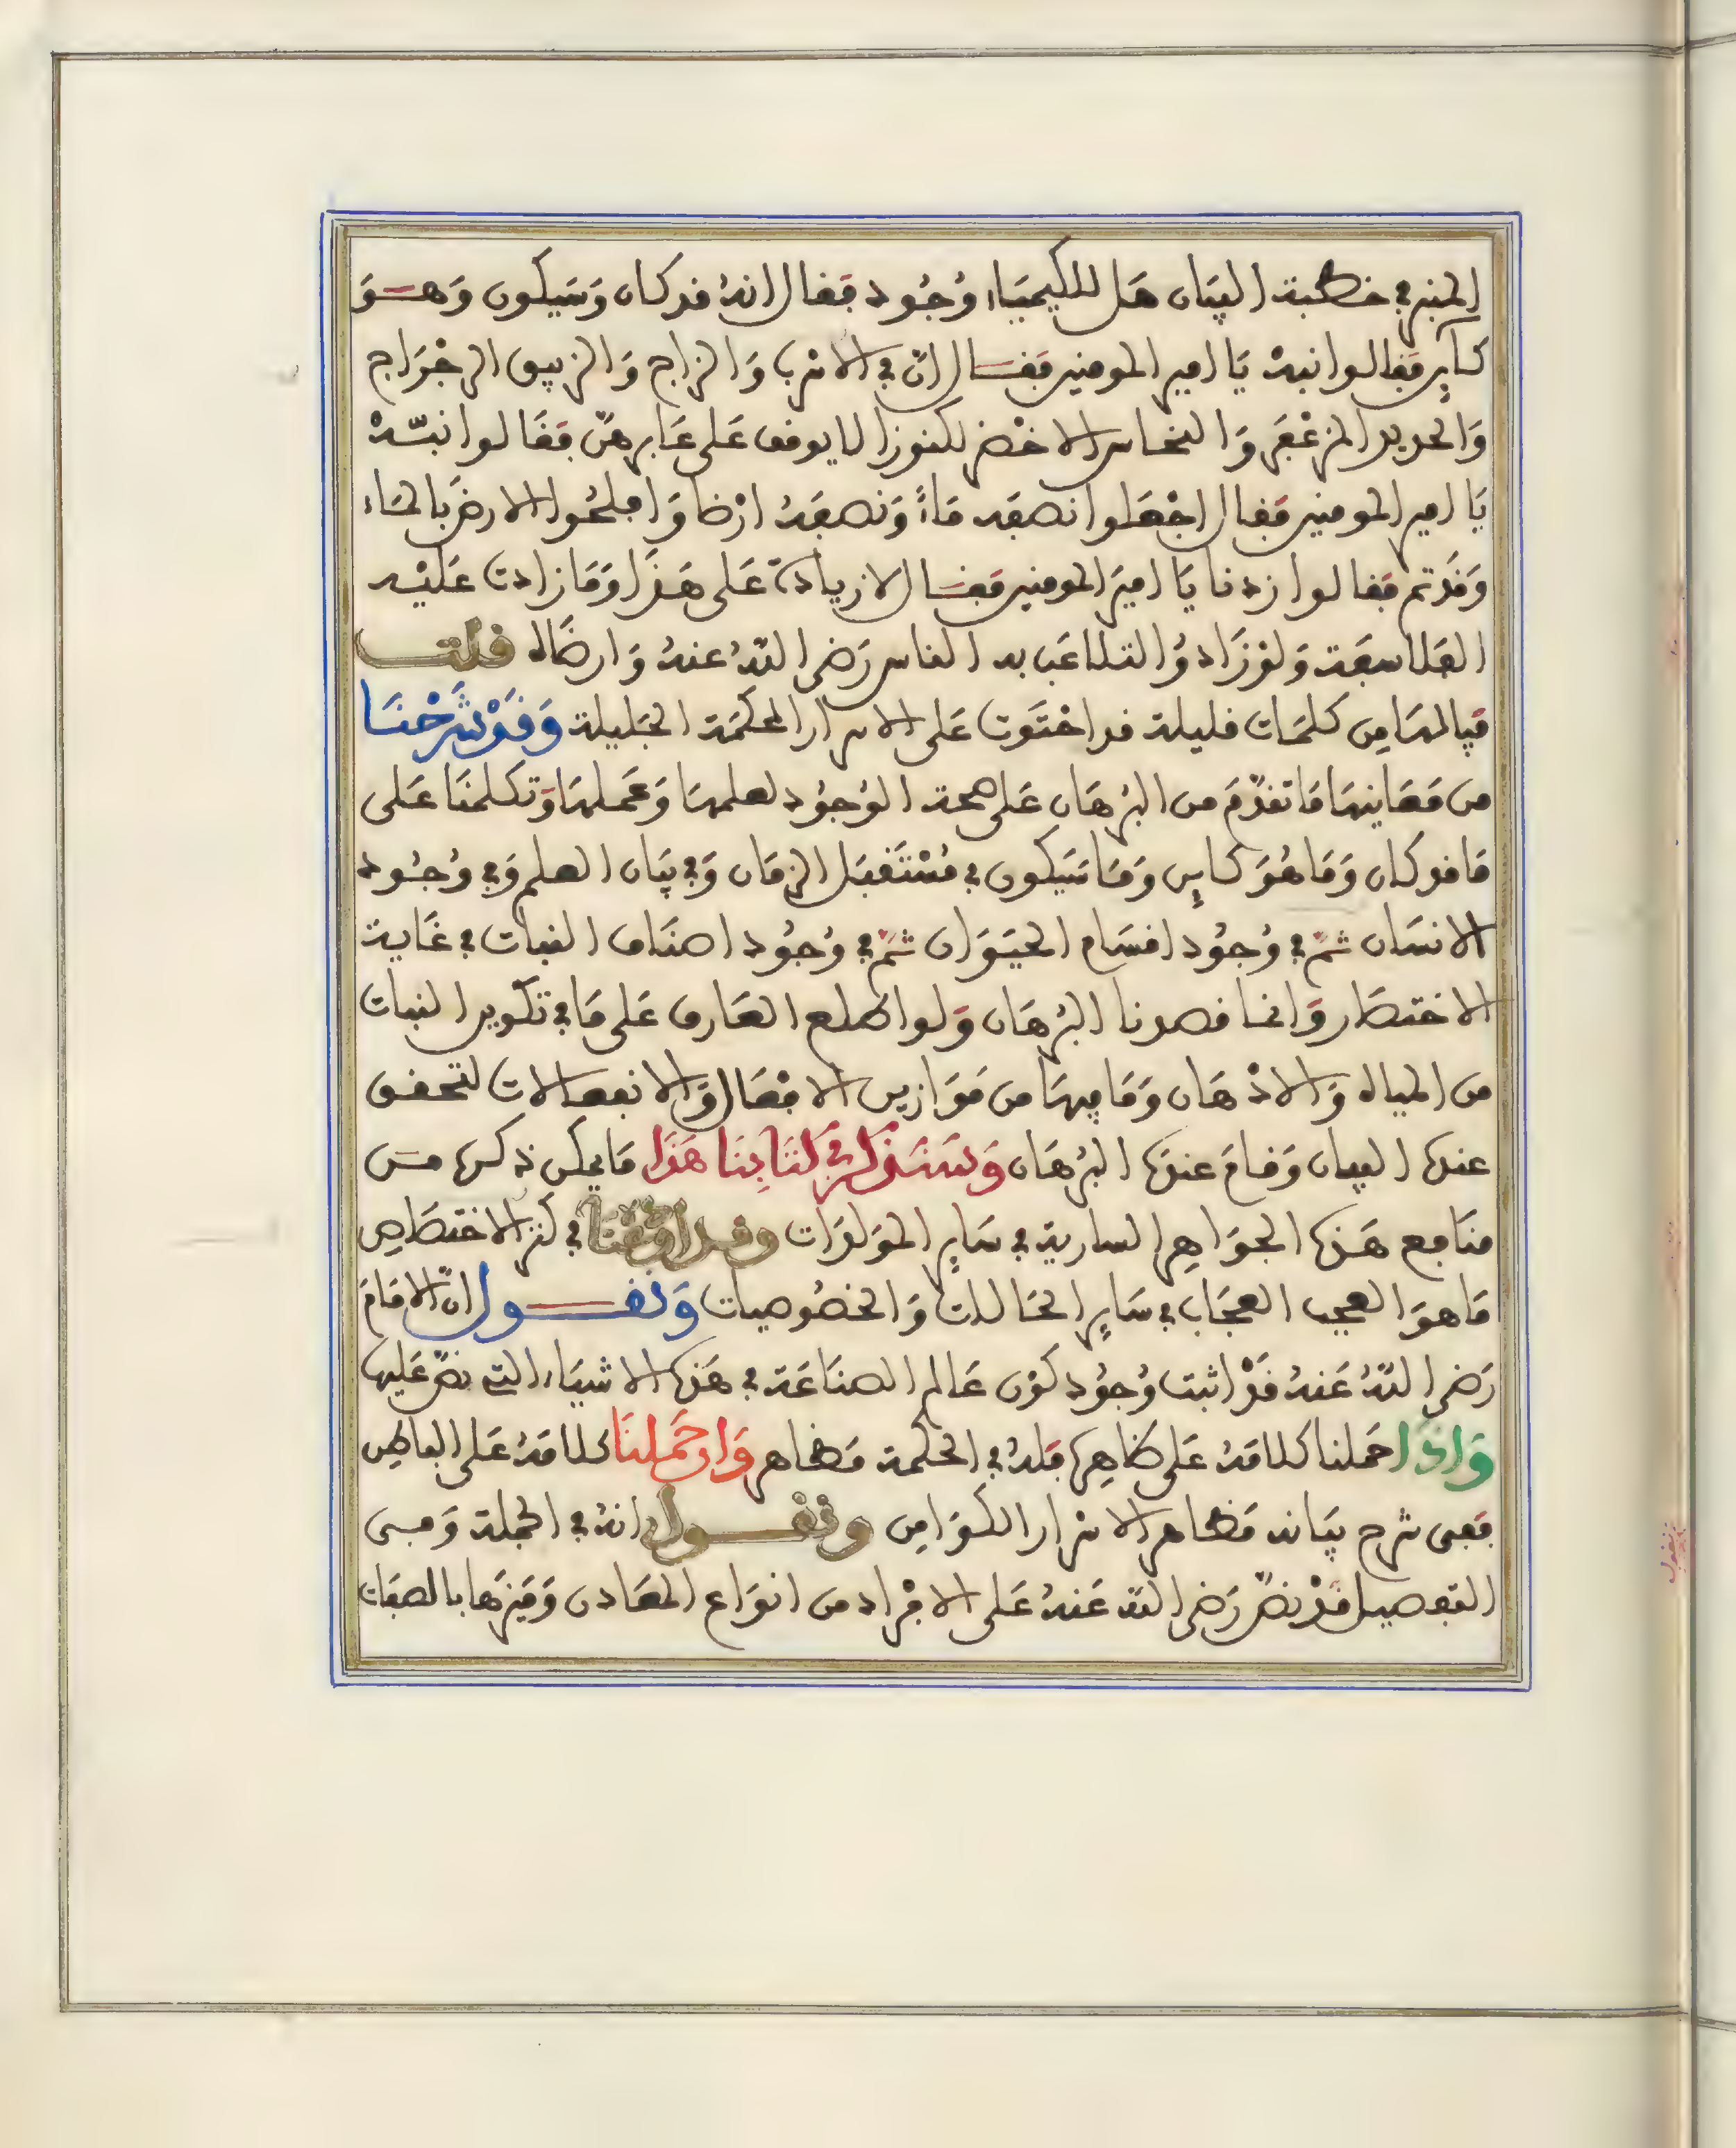 المنبر في خطبة البيان هل للكيمياء وُجُود فقال انهُ قد كان وَسَيكون وَهــوَ
كـاين فقالوا نبه يَا امير المومنين فقــال انّ في الاسرب وَالزاج وَالزيبق الرجْرَاج
وَالحديد المزعْفَر وَالنحاس الاخضر لكنوزا لا يوقف عَلى غَابرهنّ فقَالوا نبّــه
يَا امير المومنين فقال اجْعَلوا نصفه مَاءً وَنصفهُ ارْضا وَافلحُوا الارض بالمَاء
وَقَد تم فقالوا زدنا يَا اميرَ المومنين فقــال لا زيادة عَلى هَذا وَمَا زادت عَليْــه
الفلاسفَة وَلوْ زَادوُا لتلاعَب به الناس رَضى اللهُ عنهُ وَارضَاه قلتـــ
فيالهَا مِن كلمَات قليلة قد احْتَوت عَلى الاسرار المحكمَة الجَليلة وَقَدْ شَرَحْنَـا
من مَعَاينهَا مَا تقدّمَ من البُرهَان عَلى صحة الوُجوُد لعلمهَا وَعَملهَا وَتكلمنَا عَلى
مَا قد كان وَمَا هُوَ كاين وَمَا سَيكون في مُسْتَقبَل الزمَان وَفي بيَان العلم وَفي وُجُـود
الانسَان ثمّ في وُجوُد اقسَام الحيَــوَان ثمّ في وُجوُد اصنَاف النبات في غَاية
الاختصَار وَانما قصدنا البُرهَان وَلو اطلع العَارف عَلى مَا في تكوين النبات
من المياه وَالادْهَان وَمَا فيهَا من مَوَازين الافْعَال وَالانفعالات لتحقق
عنده البيان وَقـامَ عندهَ البُرهَان وَسَنذكر في كتَابِنا هَذا مَا يمكن ذكره مـن
منَافع هَـذه الجوَاهِر السارية في سَاير المَولدَات وقد اوقفنَا في كنز الاختصَاصِ
مَا هوَ العجب العجَاب في سَاير الحَالات وَالخصُوصيات وَنقـــول انّ الامَام
رَضى اللهُ عَنهُ قَدْ اثبت وُجوُد كوْن عَالم الصنَاعَة في هَذه الاشيَاء التي نصّ عَليها
وَاذا احَملنا كلامَهُ عَلى ظاهِرهَا فَلهُ في الحكمة مَظاهر وَان حَمَلنَا كلامَهُ عَلى البَاطِن
فَفى شرح بيَانه مَظاهر الاسْرار الكوَامِن ونقـــول انهُ في الجملة وَفـى
التفصيل قدْ نصّ رَضى الله عَنهُ عَلى الافْراد من انوَاع المعَادن وَمَيزهَا بالصفَات